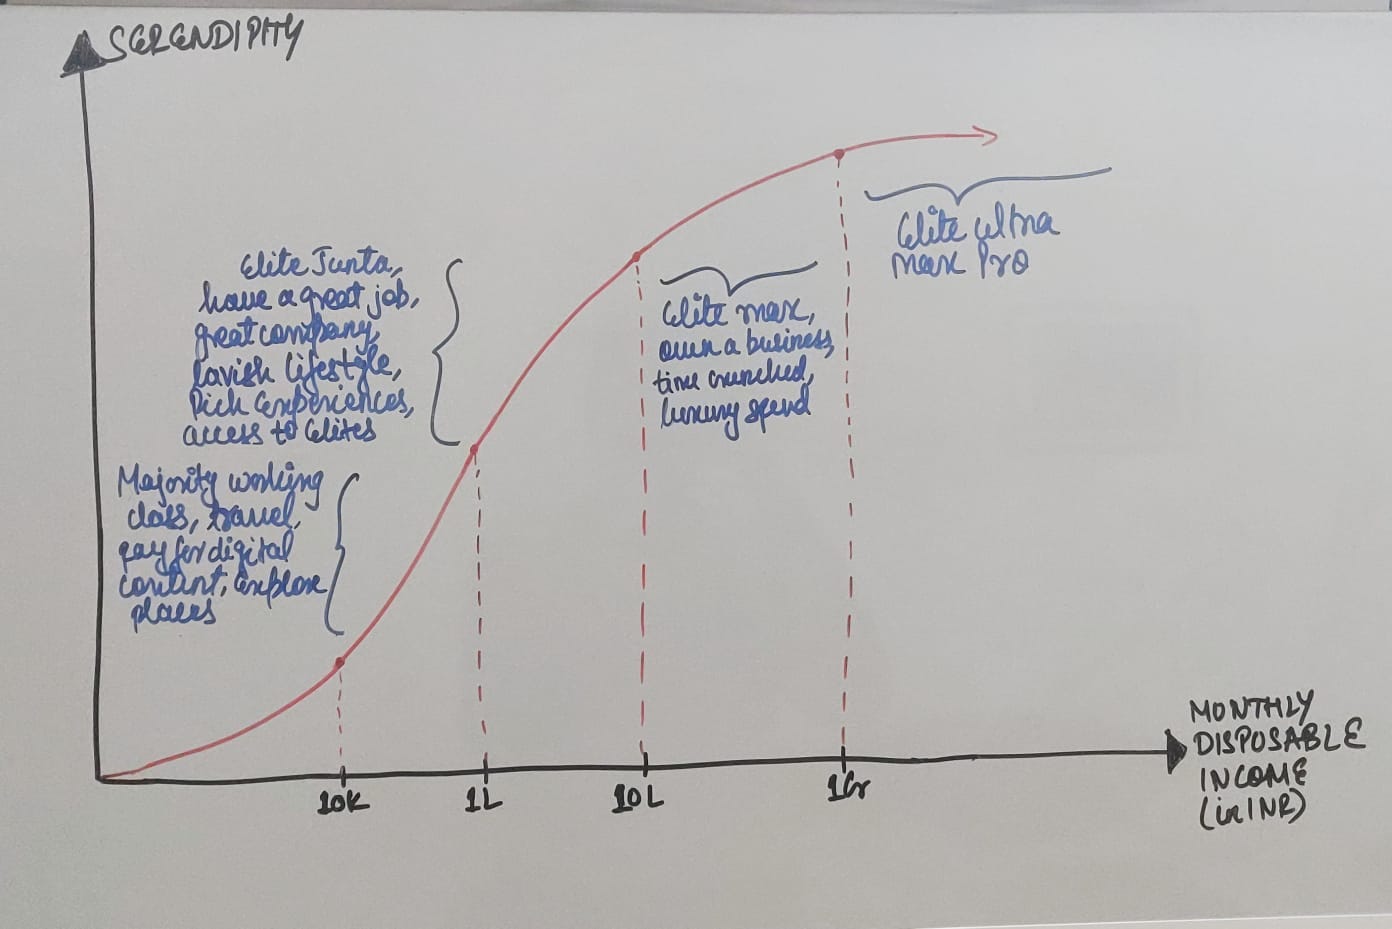 SERENDIPITY
Elite Junta,
have a great job,
great company,
lavish lifestyle,
Rich Experiences,
access to Elites
Majority working
class, travel,
pay for digital
content, explore
places
Elite max,
own a business,
time crunched,
luxury spend
Elite ultra
max Pro
10K
1L
10L
1Cr
MONTHLY
DISPOSABLE
INCOME
(in INR)